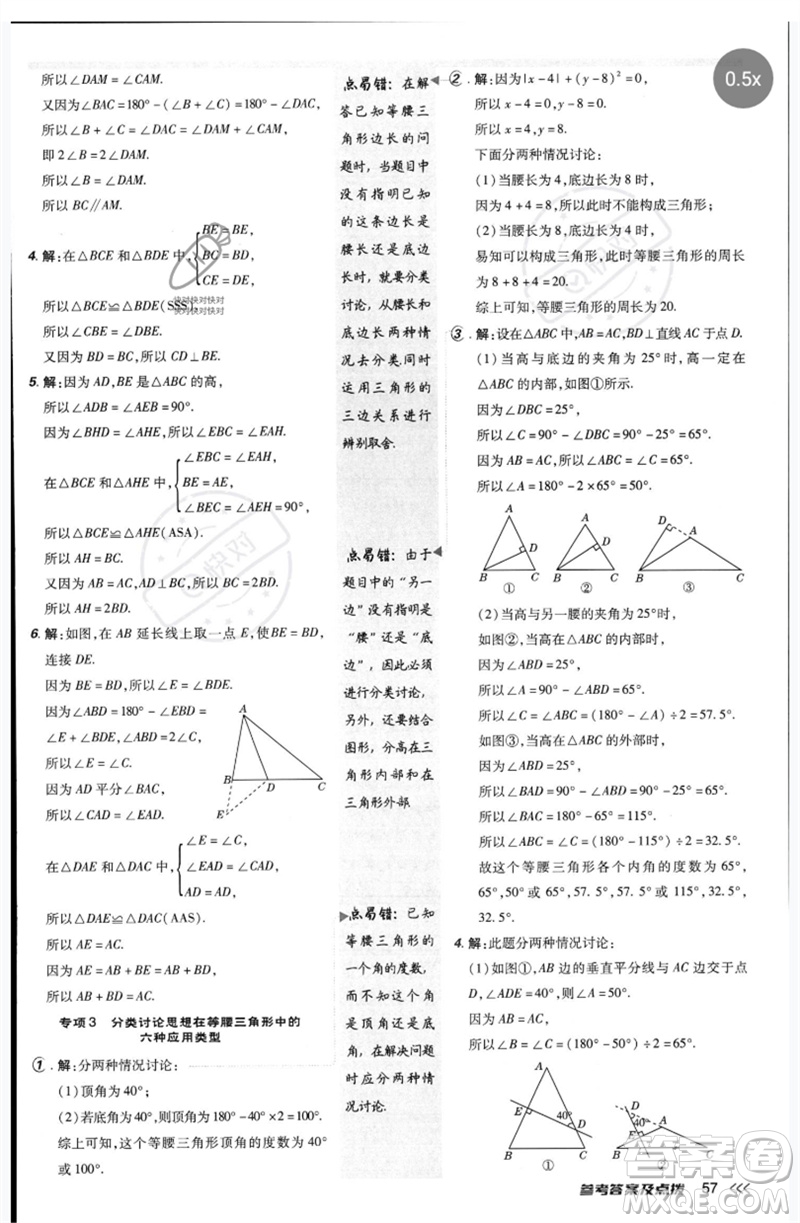 所以∠DAM = ∠CAM.
又因为∠BAC=180° - (∠B + ∠C),
所以∠B + ∠C = ∠DAM + ∠CAM.
即 2∠B = 2∠DAM.
所以∠B = ∠DAM.
所以 BC∥AM.
4. 解:在△BCE 和△BDE 中,
BE = BE,
BC = BD,
CE = DE,
所以△BCE≌△BDE(SSS).
所以∠CBE = ∠DBE.
又因为 BC = BD,
所以 CE = DE.
5. 解:因为 AD,BE 是△ABC 的高,
所以∠ADB = ∠AEB = 90°.
因为∠BHD = ∠AHE,所以∠EBC = ∠EAH.
在△BCE 和△AHE 中,
∠EBC = ∠EAH,
BE = AE,
∠BEC = ∠AEH = 90°,
所以△BCE≌△AHE(ASA).
所以 AH = BC.
又因为 AB = AC,AD⊥BC,所以 BC = 2BD.
所以 AH = 2BD.
6. 解:如图,在 AB 延长线上取一点 E,使BE = BD,
连接 DE.
因为 BE = BD,所以∠E = ∠BDE.
因为∠ABD = 180° - ∠DBE =
∠E + ∠BDE,∠ABD = 2∠C,
所以∠E = ∠C.
因为 AD 平分∠BAC,
所以∠CAD = ∠EAD.
A
B
D
C
E
在△DAE 和△DAC 中,
∠E = ∠C,
∠EAD = ∠CAD,
AD = AD,
所以△DAE≌△DAC(AAS).
所以 AE = AC.
因为 AE = AB + BE,
所以 AC = AB + BE.
所以 AC = AB + BD.
专项 3 分类讨论思想在等腰三角形中的
六种应用类型
① . 解:分两种情况讨论:
(1)顶角为 40°;
(2)若底角为 40°,则顶角为 180°-40°×2=100°.
综上可知,等腰三角形顶角的度数为 40°
或 100°.
点易错: 在解
答已知等腰三
角形边长的问
题时,当题目中
没有指明已知
的这条边长是
腰长还是底边
长时,就要分类
讨论,以腰长和
底边长两种情
况去分类,同时
运用三角形的
三边关系进行
辨别取舍.
点易错: 由于
题目中的“另一
边”没有指明是
“腰”还是“底
边”,因此必须
进行分类讨论,
另外,还要结合
图形,分高在三
角形内部和在
三角形外部
点易错: 已知
等腰三角形的
一个角的度数,
而不知这个角
是顶角还是底
角,在解决问题
时应分两种情
况讨论.
② . 解:因为|x-4|+(y-8)²=0,
所以 x=4,y=8.
下面分两种情况讨论:
(1)当腰长为 4,底边长为 8 时,
因为 4+4=8,所以此时不能构成三角形;
(2)当腰长为 8,底边长为 4 时,
易知可以构成三角形,此时等腰三角形的周长
为 8+8+4=20.
综上可知,等腰三角形的周长为 20.
③ . 解:设在△ABC 中,AB=AC,BD⊥直线 AC 于点 D.
(1)当高与底边的夹角为 25°时,高一定在
△ABC 的内部,如图①所示.
因为∠DBC=25°,
所以∠C=90°-∠DBC=90°-25°=65°.
因为 AB=AC,所以∠ABC=∠C=65°.
所以∠A=180°-2×65°=50°.
A
D
B
C
①
A
D
B
C
②
D
A
B
C
③
(2)当高与另一腰的夹角为 25°时,
如图②,当高在△ABC 的内部时,
因为∠ABD=25°,
所以∠A=90°-∠ABD=65°.
所以∠C=∠ABC=(180°-∠A)÷2=57.5°.
如图③,当高在△ABC 的外部时,
因为∠ABD=25°,
所以∠BAD=90°-∠ABD=65°.
所以∠BAC=180°-65°=115°.
所以∠ABC=∠C=(180°-115°)÷2=32.5°.
故这个等腰三角形各个内角的度数为 65°,
65°,50°或 65°,57.5°,57.5°或 115°,32.5°,
32.5°.
4. 解:此题分两种情况讨论:
(1)如图①,AB 边的垂直平分线与 AC 边交于点
D,垂足为 E,∠ADE=40°,则∠A=50°,
因为 AB=AC,
所以∠B=(180°-50°)÷2=65°.
A
E
40°
D
B
C
①
D
40°
A
E
B
C
②
参考答案及点拨 57 <<<
0.5x
快对快对快对
快对快对快对
快对
快对
答案圈
MXQE.COM